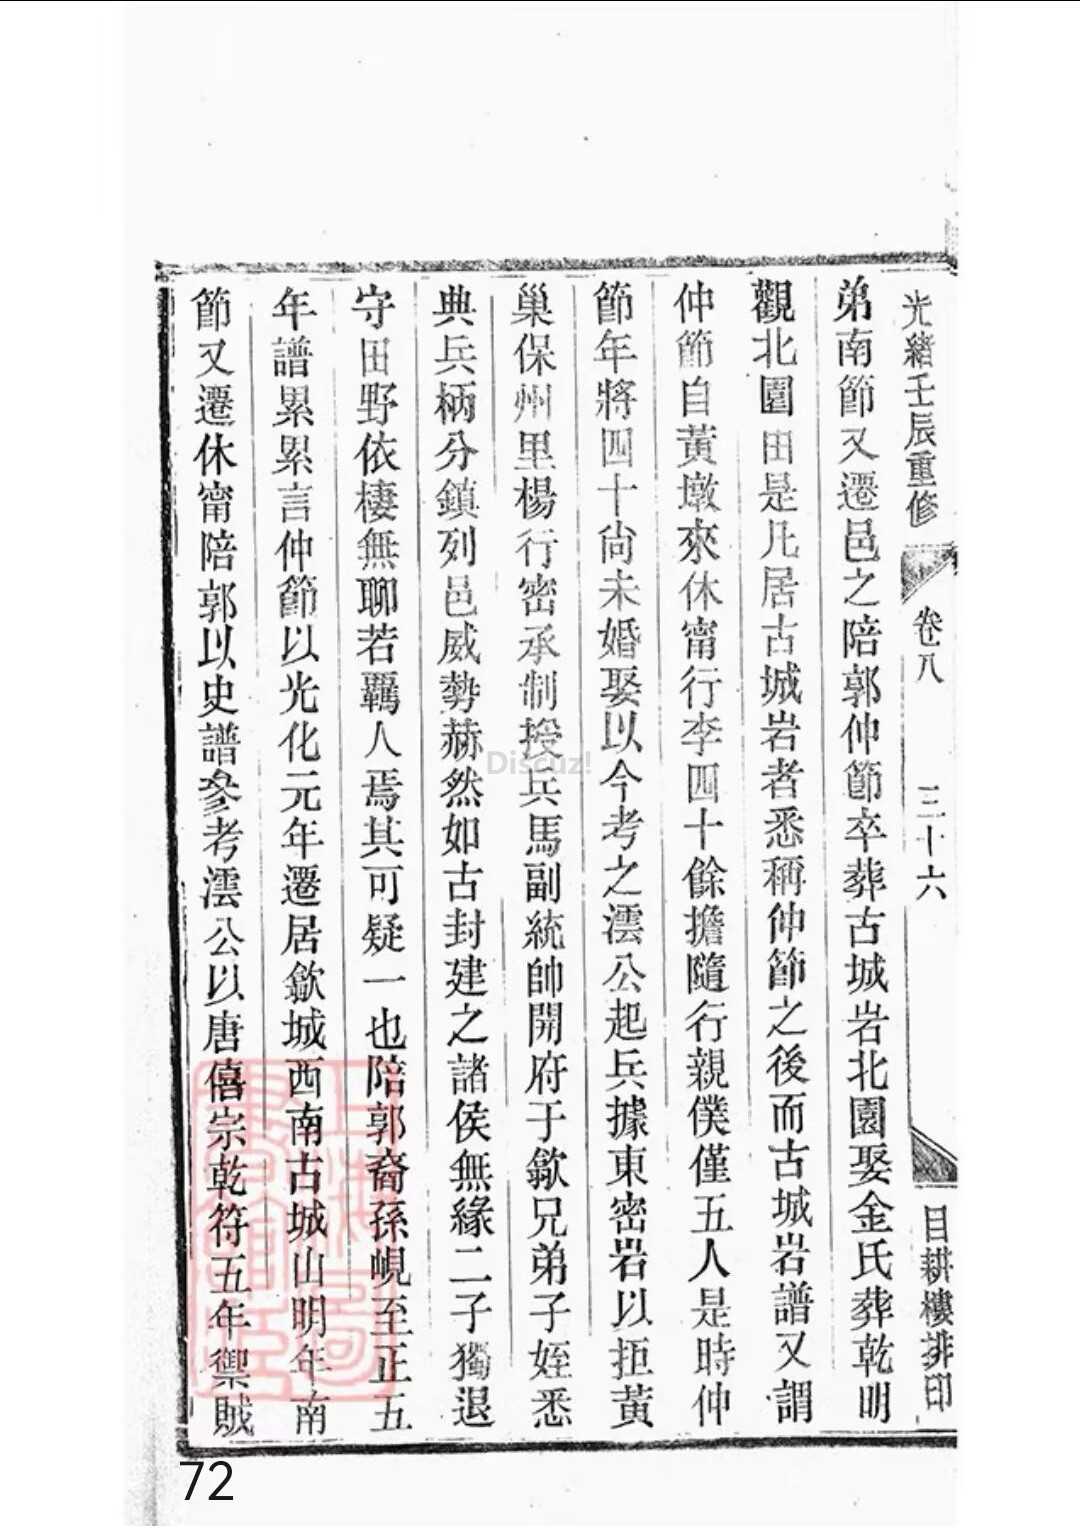 光緒壬辰重修 卷八 三十六 目耕樓排印
弟南節又遷邑之陪郭仲節卒葬古城岩北園娶金氏葬乾明
觀北園田是凡居古城岩者悉稱仲節之後而古城岩譜又謂
仲節自黃墩來休甯行李四十餘擔隨行親僕僅五人是時仲
節年將四十尙未婚娶以今考之澐公起兵據東密岩以拒黃
巢保州里楊行密承制授兵馬副統帥開府于歙兄弟子姪悉
典兵柄分鎮列邑威勢赫然如古封建之諸侯無緣二子獨退
守田野依棲無聊若羈人焉其可疑一也陪郭裔孫峴至正五
年譜累累言仲節以光化元年遷居歙城西南古城山明年南
節又遷休甯陪郭以史譜參考澐公以唐僖宗乾符五年禦賊
Discuz!
72